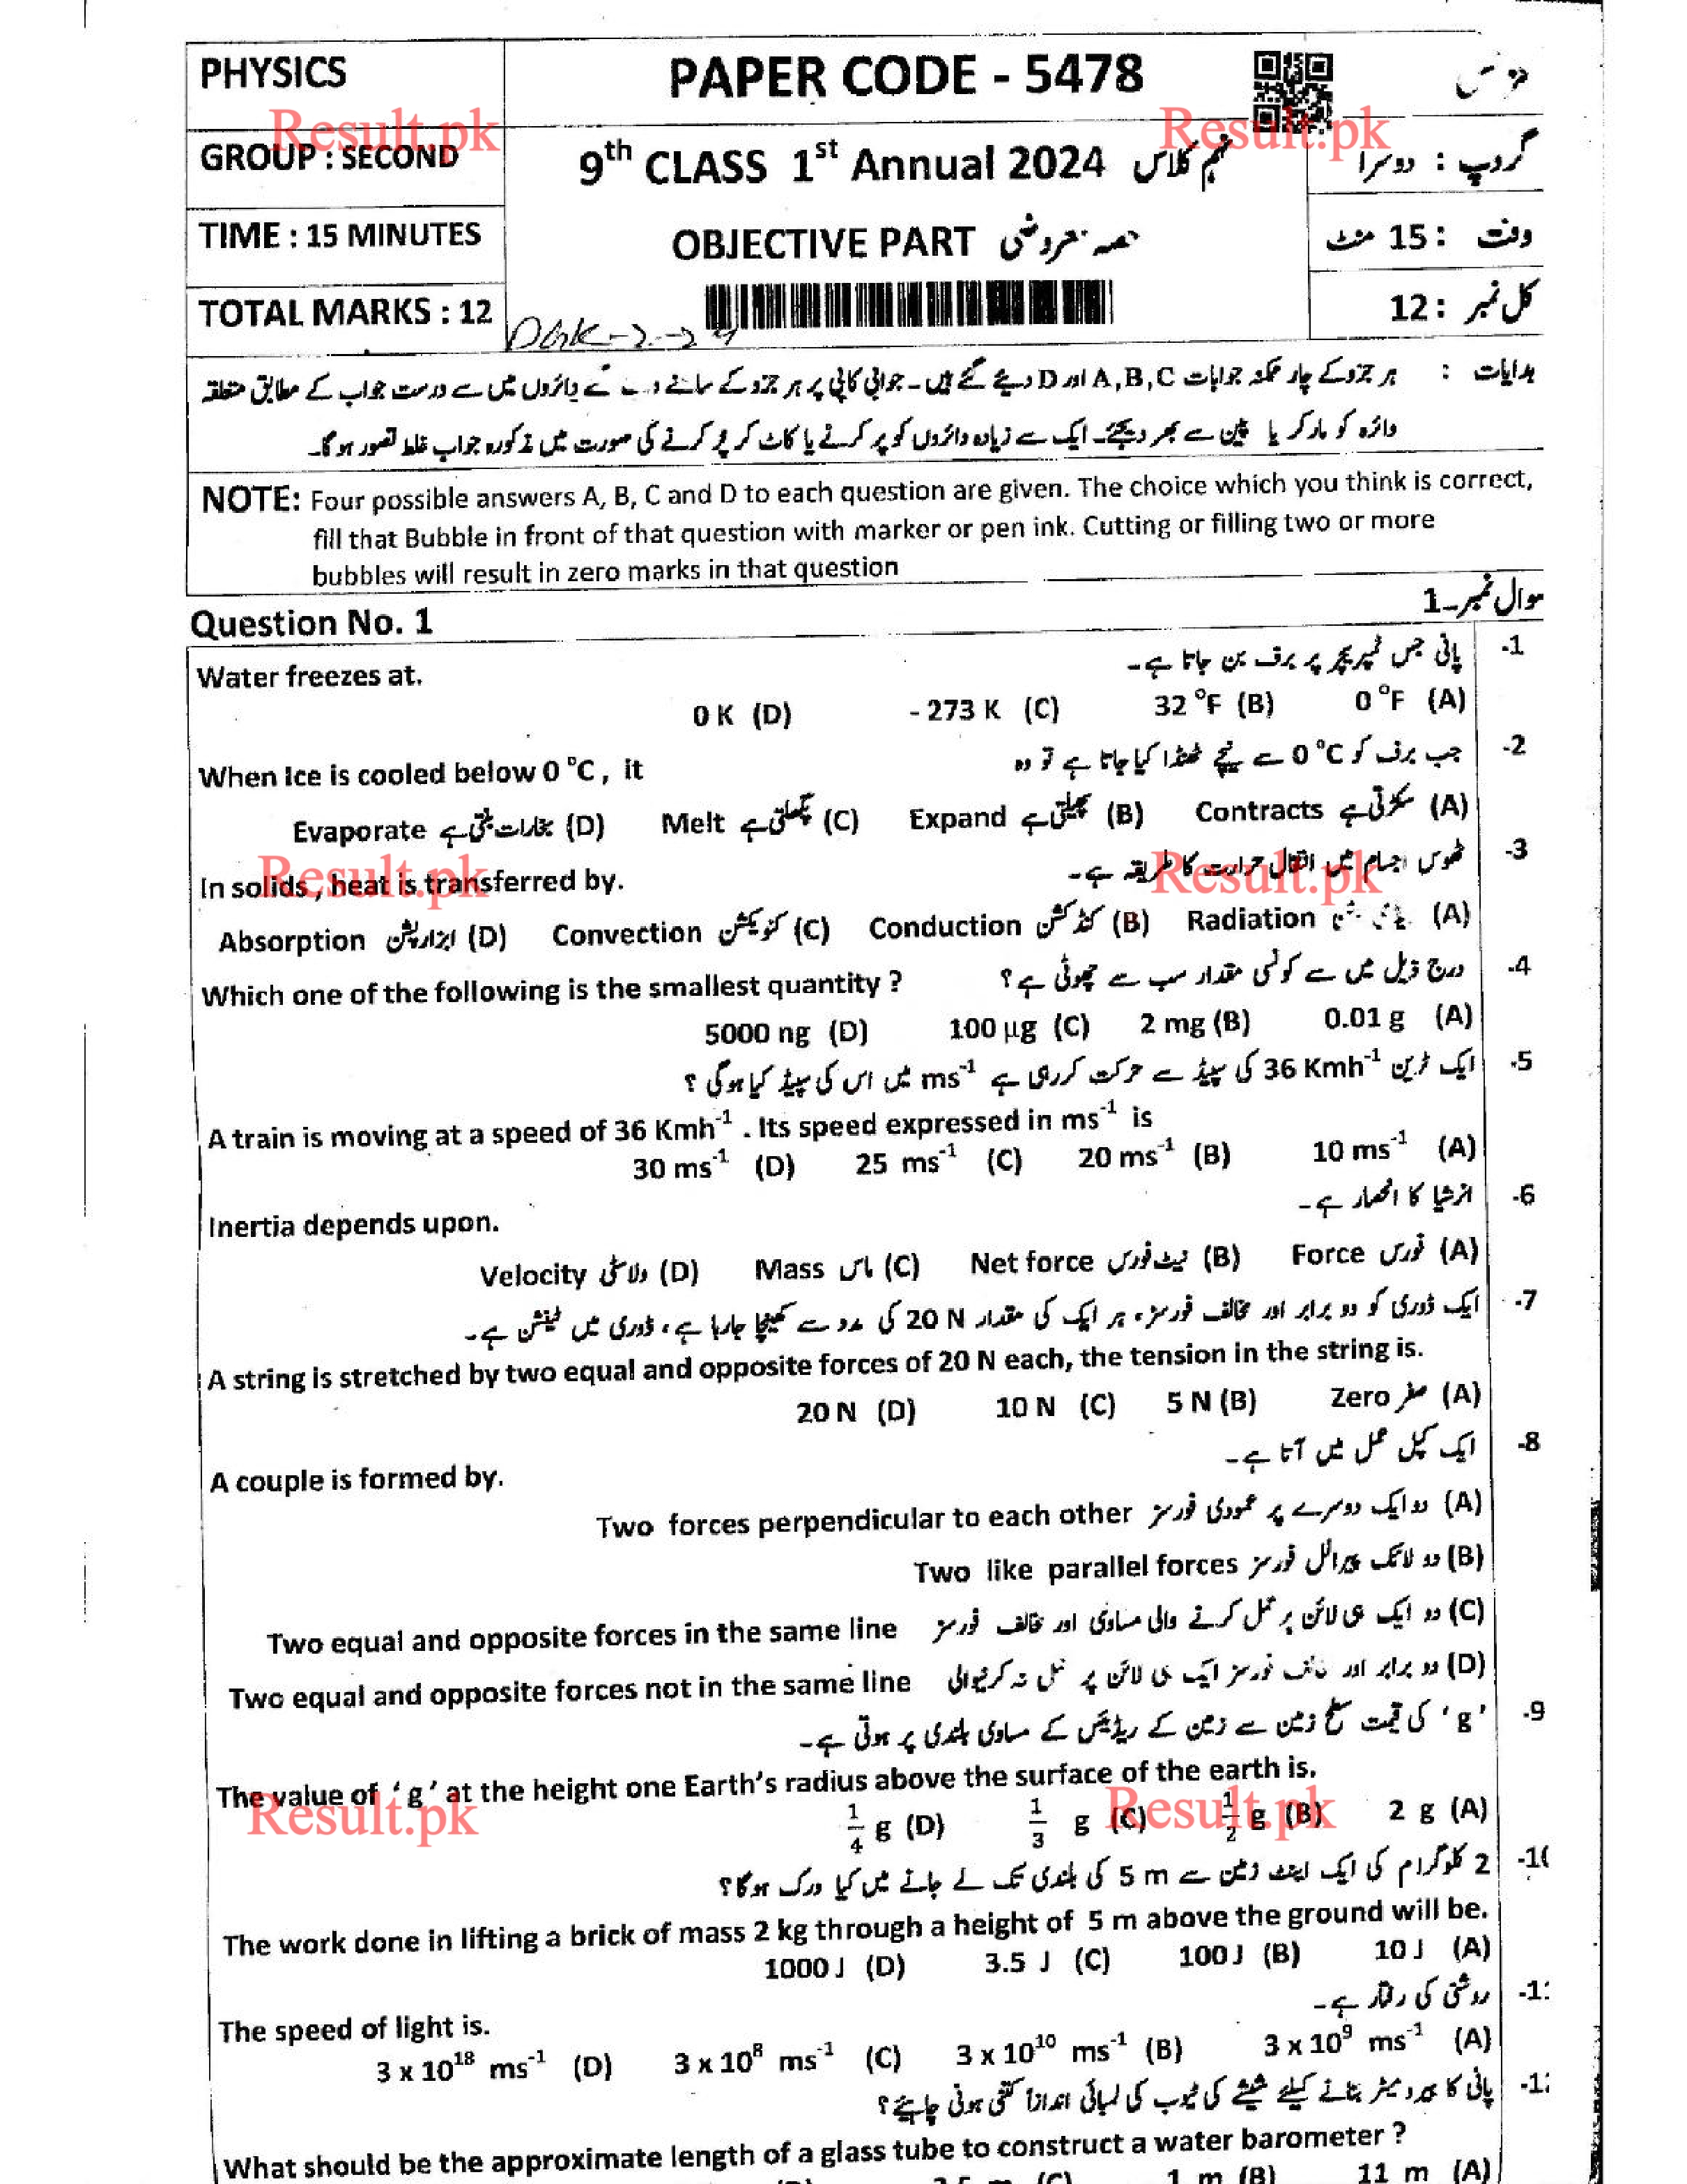 PHYSICS
PAPER CODE - 5478
GROUP : SECOND
9th CLASS 1st Annual 2024 نہم کلاس
گروپ : دوسرا
TIME : 15 MINUTES
OBJECTIVE PART حصہ معروضی
وقت : 15 منٹ
TOTAL MARKS : 12
کل نمبر : 12
ہدایات : ہر جزو کے چار ممکنہ جوابات A,B,C اور D دیئے گئے ہیں۔ جوابی کاپی پر ہر جزو کے سامنے دیئے گئے دائروں میں سے درست جواب کے مطابق متعلقہ
دائرہ کو مارکر یا پین سے بھر دیجئے۔ ایک سے زیادہ دائروں کو پر کرنے یا کاٹ کر پر کرنے کی صورت میں مذکورہ جواب غلط تصور ہو گا۔
NOTE: Four possible answers A, B, C and D to each question are given. The choice which you think is correct,
fill that Bubble in front of that question with marker or pen ink. Cutting or filling two or more
bubbles will result in zero marks in that question
Question No. 1
سوال نمبر۔1
-1 پانی جس ٹمپریچر پر برف بن جاتا ہے۔
Water freezes at.
0 K (D) - 273 K (C) 32 °F (B) 0 °F (A)
-2 جب برف کو 0 °C سے نیچے ٹھنڈا کیا جاتا ہے تو وہ
When Ice is cooled below 0 °C, it
Evaporate بخارات بنتی ہے (D) Melt پگھلتی ہے (C) Expand پھیلتی ہے (B) Contracts سکڑتی ہے (A)
-3 ٹھوس اجسام میں انتقال حرارت کا طریقہ ہے۔
In solids, heat is transferred by.
Absorption ابزارپشن (D) Convection کنویکشن (C) Conduction کنڈکشن (B) Radiation (A)
-4 درج ذیل میں سے کونسی مقدار سب سے چھوٹی ہے؟
Which one of the following is the smallest quantity ?
5000 ng (D) 100 µg (C) 2 mg (B) 0.01 g (A)
-5 ایک ٹرین 36 Kmh-1 کی سپیڈ سے حرکت کر رہی ہے ms-1 میں اس کی سپیڈ کیا ہوگی ؟
A train is moving at a speed of 36 Kmh-1 . Its speed expressed in ms-1 is
30 ms-1 (D) 25 ms-1 (C) 20 ms-1 (B) 10 ms-1 (A)
-6 انرشیا کا انحصار ہے۔
Inertia depends upon.
Velocity ولاسٹی (D) Mass ماس (C) Net force نیٹ فورس (B) Force فورس (A)
-7 ایک ڈوری کو دو برابر اور مخالف فورسز، ہر ایک کی مقدار 20 N کی مدد سے کھینچا جا رہا ہے، ڈوری میں ٹینشن ہے۔
A string is stretched by two equal and opposite forces of 20 N each, the tension in the string is.
20 N (D) 10 N (C) 5 N (B) Zero صفر (A)
-8 ایک کپل عمل میں آتا ہے۔
A couple is formed by.
Two forces perpendicular to each other دو ایک دوسرے پر عمودی فورسز (A)
Two like parallel forces دو لائک پیرالل فورسز (B)
Two equal and opposite forces in the same line دو ایک ہی لائن پر عمل کرنے والی مساوی اور مخالف فورسز (C)
Two equal and opposite forces not in the same line دو برابر اور مخالف فورسز ایک ہی لائن پر عمل نہ کرنیوالی (D)
-9 'g' کی قیمت سطح زمین سے زمین کے ریڈیئس کے مساوی بلندی پر ہوتی ہے۔
The value of ' g ' at the height one Earth's radius above the surface of the earth is.
1/4 g (D) 1/3 g (C) 1/2 g (B) 2 g (A)
-10 2 کلوگرام کی ایک اینٹ زمین سے 5 m کی بلندی تک لے جانے میں کیا ورک ہوگا؟
The work done in lifting a brick of mass 2 kg through a height of 5 m above the ground will be.
1000 J (D) 3.5 J (C) 100 J (B) 10 J (A)
روشنی کی رفتار ہے۔
The speed of light is.
3 x 10^18 ms-1 (D) 3 x 10^8 ms-1 (C) 3 x 10^10 ms-1 (B) 3 x 10^9 ms-1 (A)
پانی کا بیرومیٹر بنانے کیلئے شیشے کی ٹیوب کی لمبائی اندازا کتنی ہونی چاہیئے؟
What should be the approximate length of a glass tube to construct a water barometer ?
1 m (B) 11 m (A)
Result.pk
Result.pk
Result.pk
Result.pk
Result.pk
Result.pk